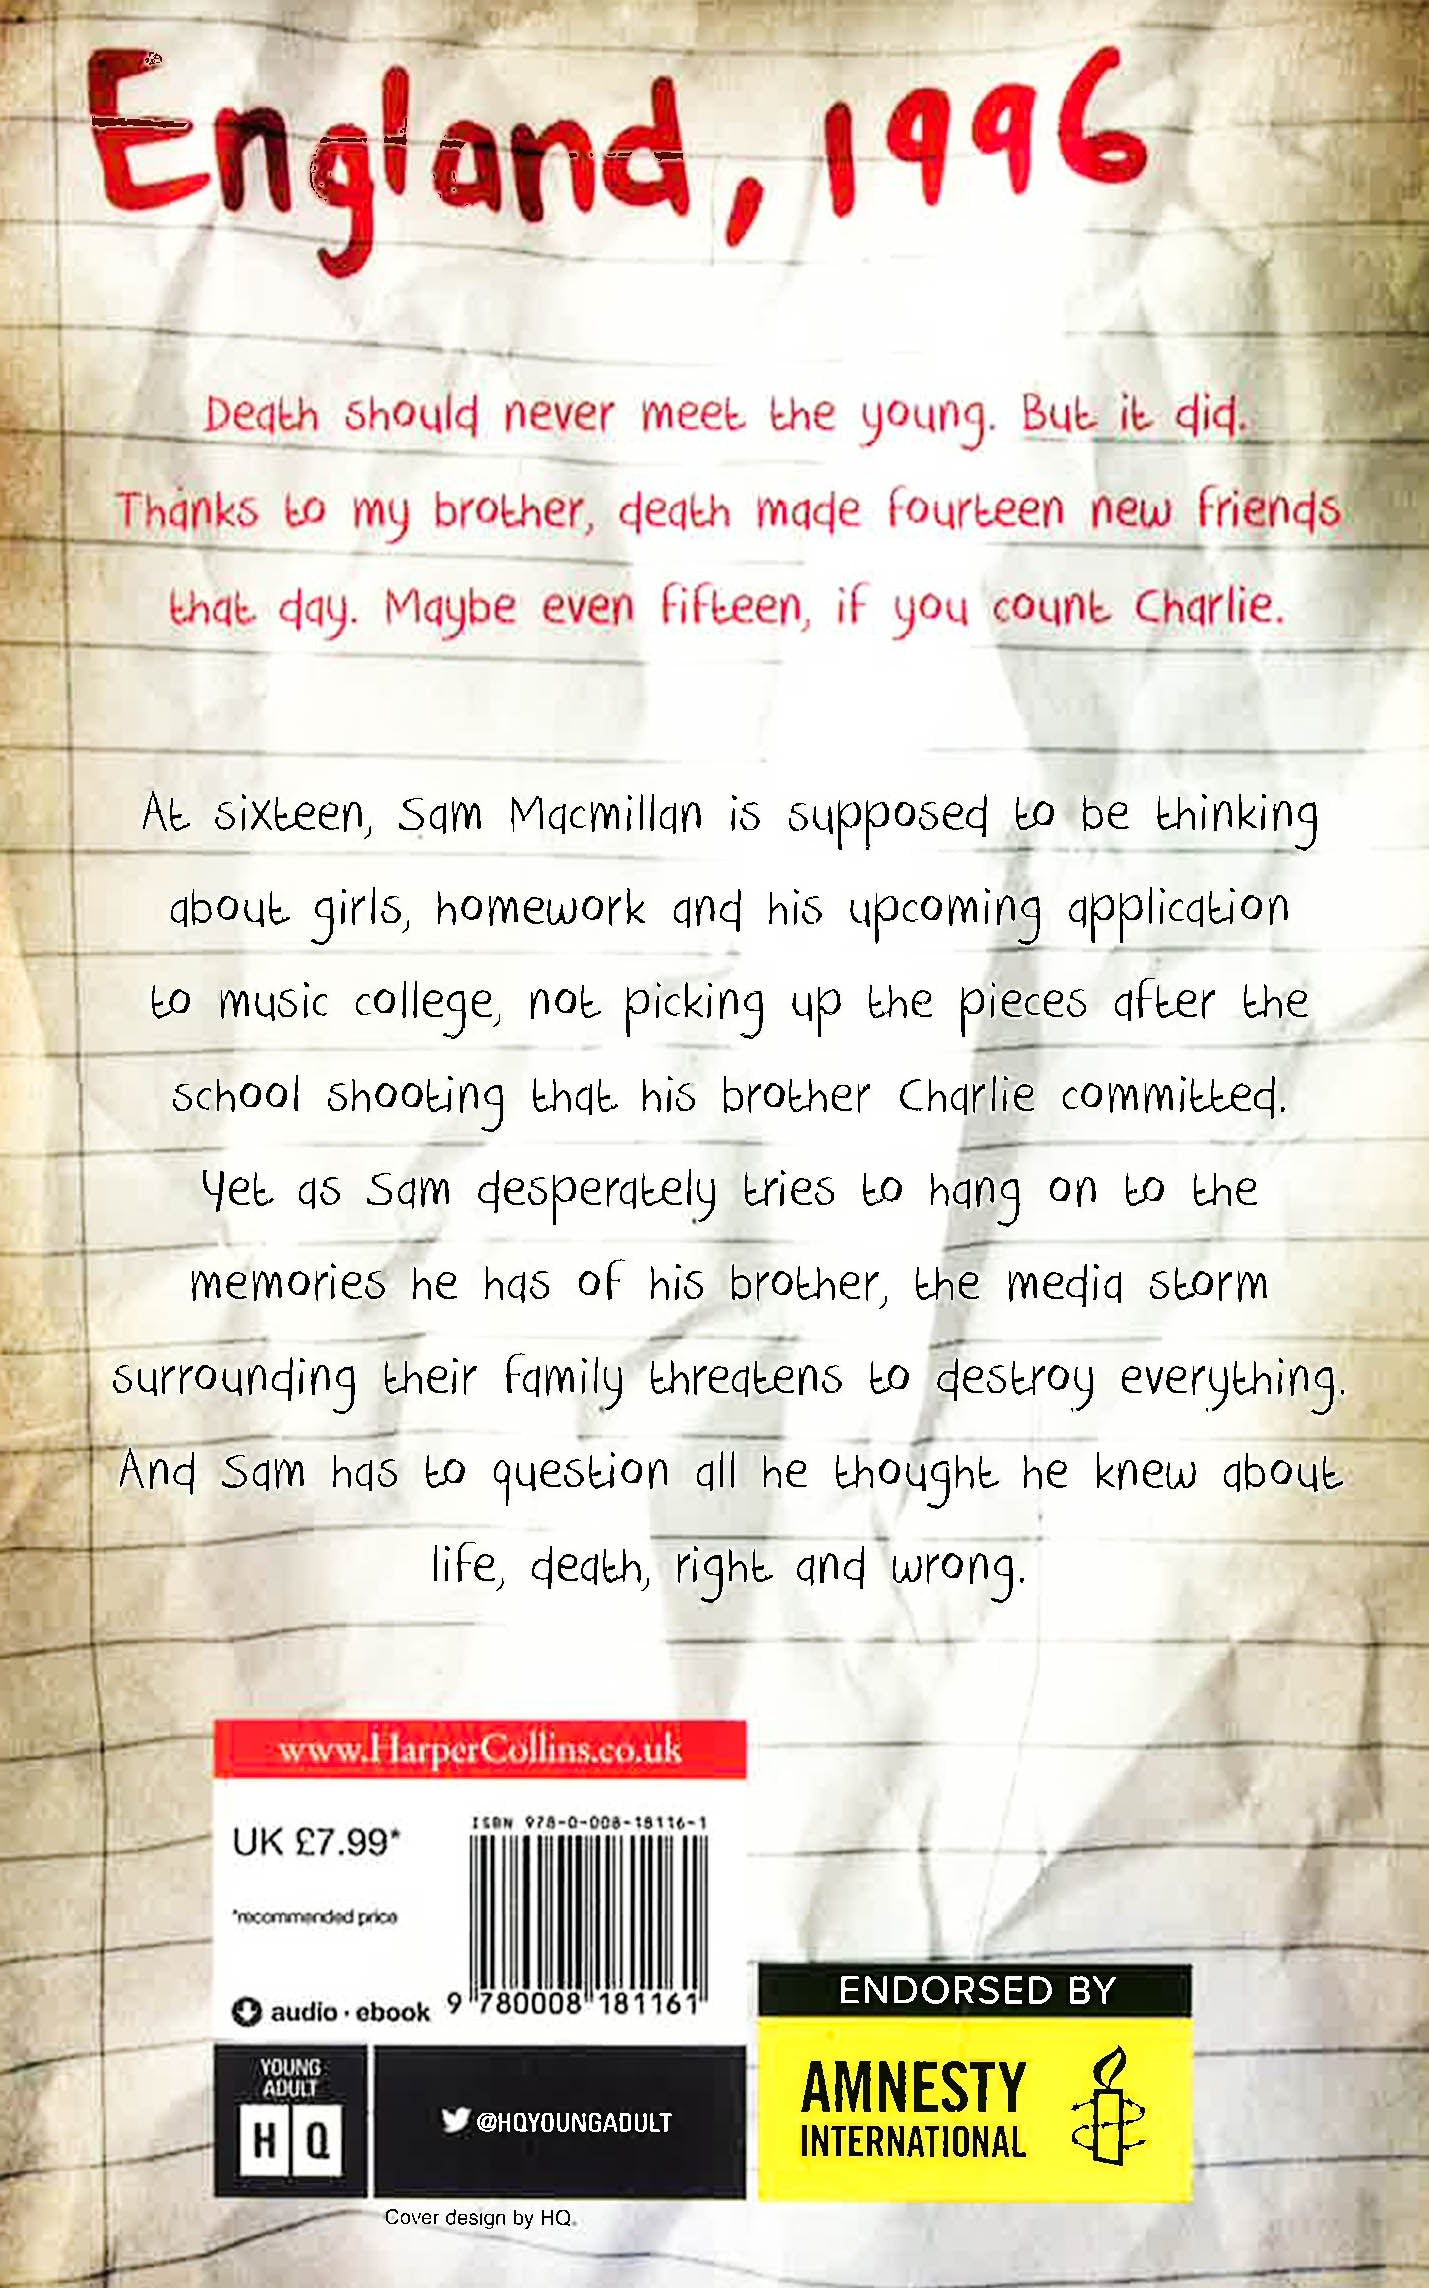 England, 1996
Death should never meet the young. But it did.
Thanks to my brother, death made fourteen new friends
that day. Maybe even fifteen, if you count Charlie.
At sixteen, Sam Macmillan is supposed to be thinking
about girls, homework and his upcoming application
to music college, not picking up the pieces after the
school shooting that his brother Charlie committed.
Yet as Sam desperately tries to hang on to the
memories he has of his brother, the media storm
surrounding their family threatens to destroy everything.
And Sam has to question all he thought he knew about
life, death, right and wrong.
www.HarperCollins.co.uk
UK £7.99*
*recommended price
audio · ebook
ISBN 978-0-008-18116-1
9 780008 181161
YOUNG
ADULT
HQ
@HQYOUNGADULT
Cover design by HQ.
ENDORSED BY
AMNESTY
INTERNATIONAL